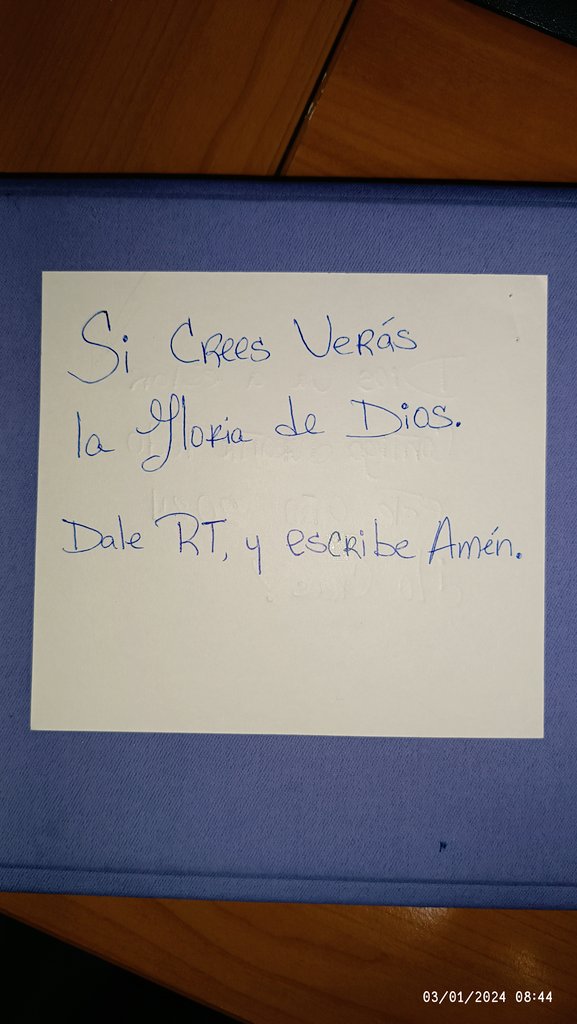 Si Crees Verás
la Gloria de Dios.
Dale RT, y escribe Amén.
03/01/2024 08:44